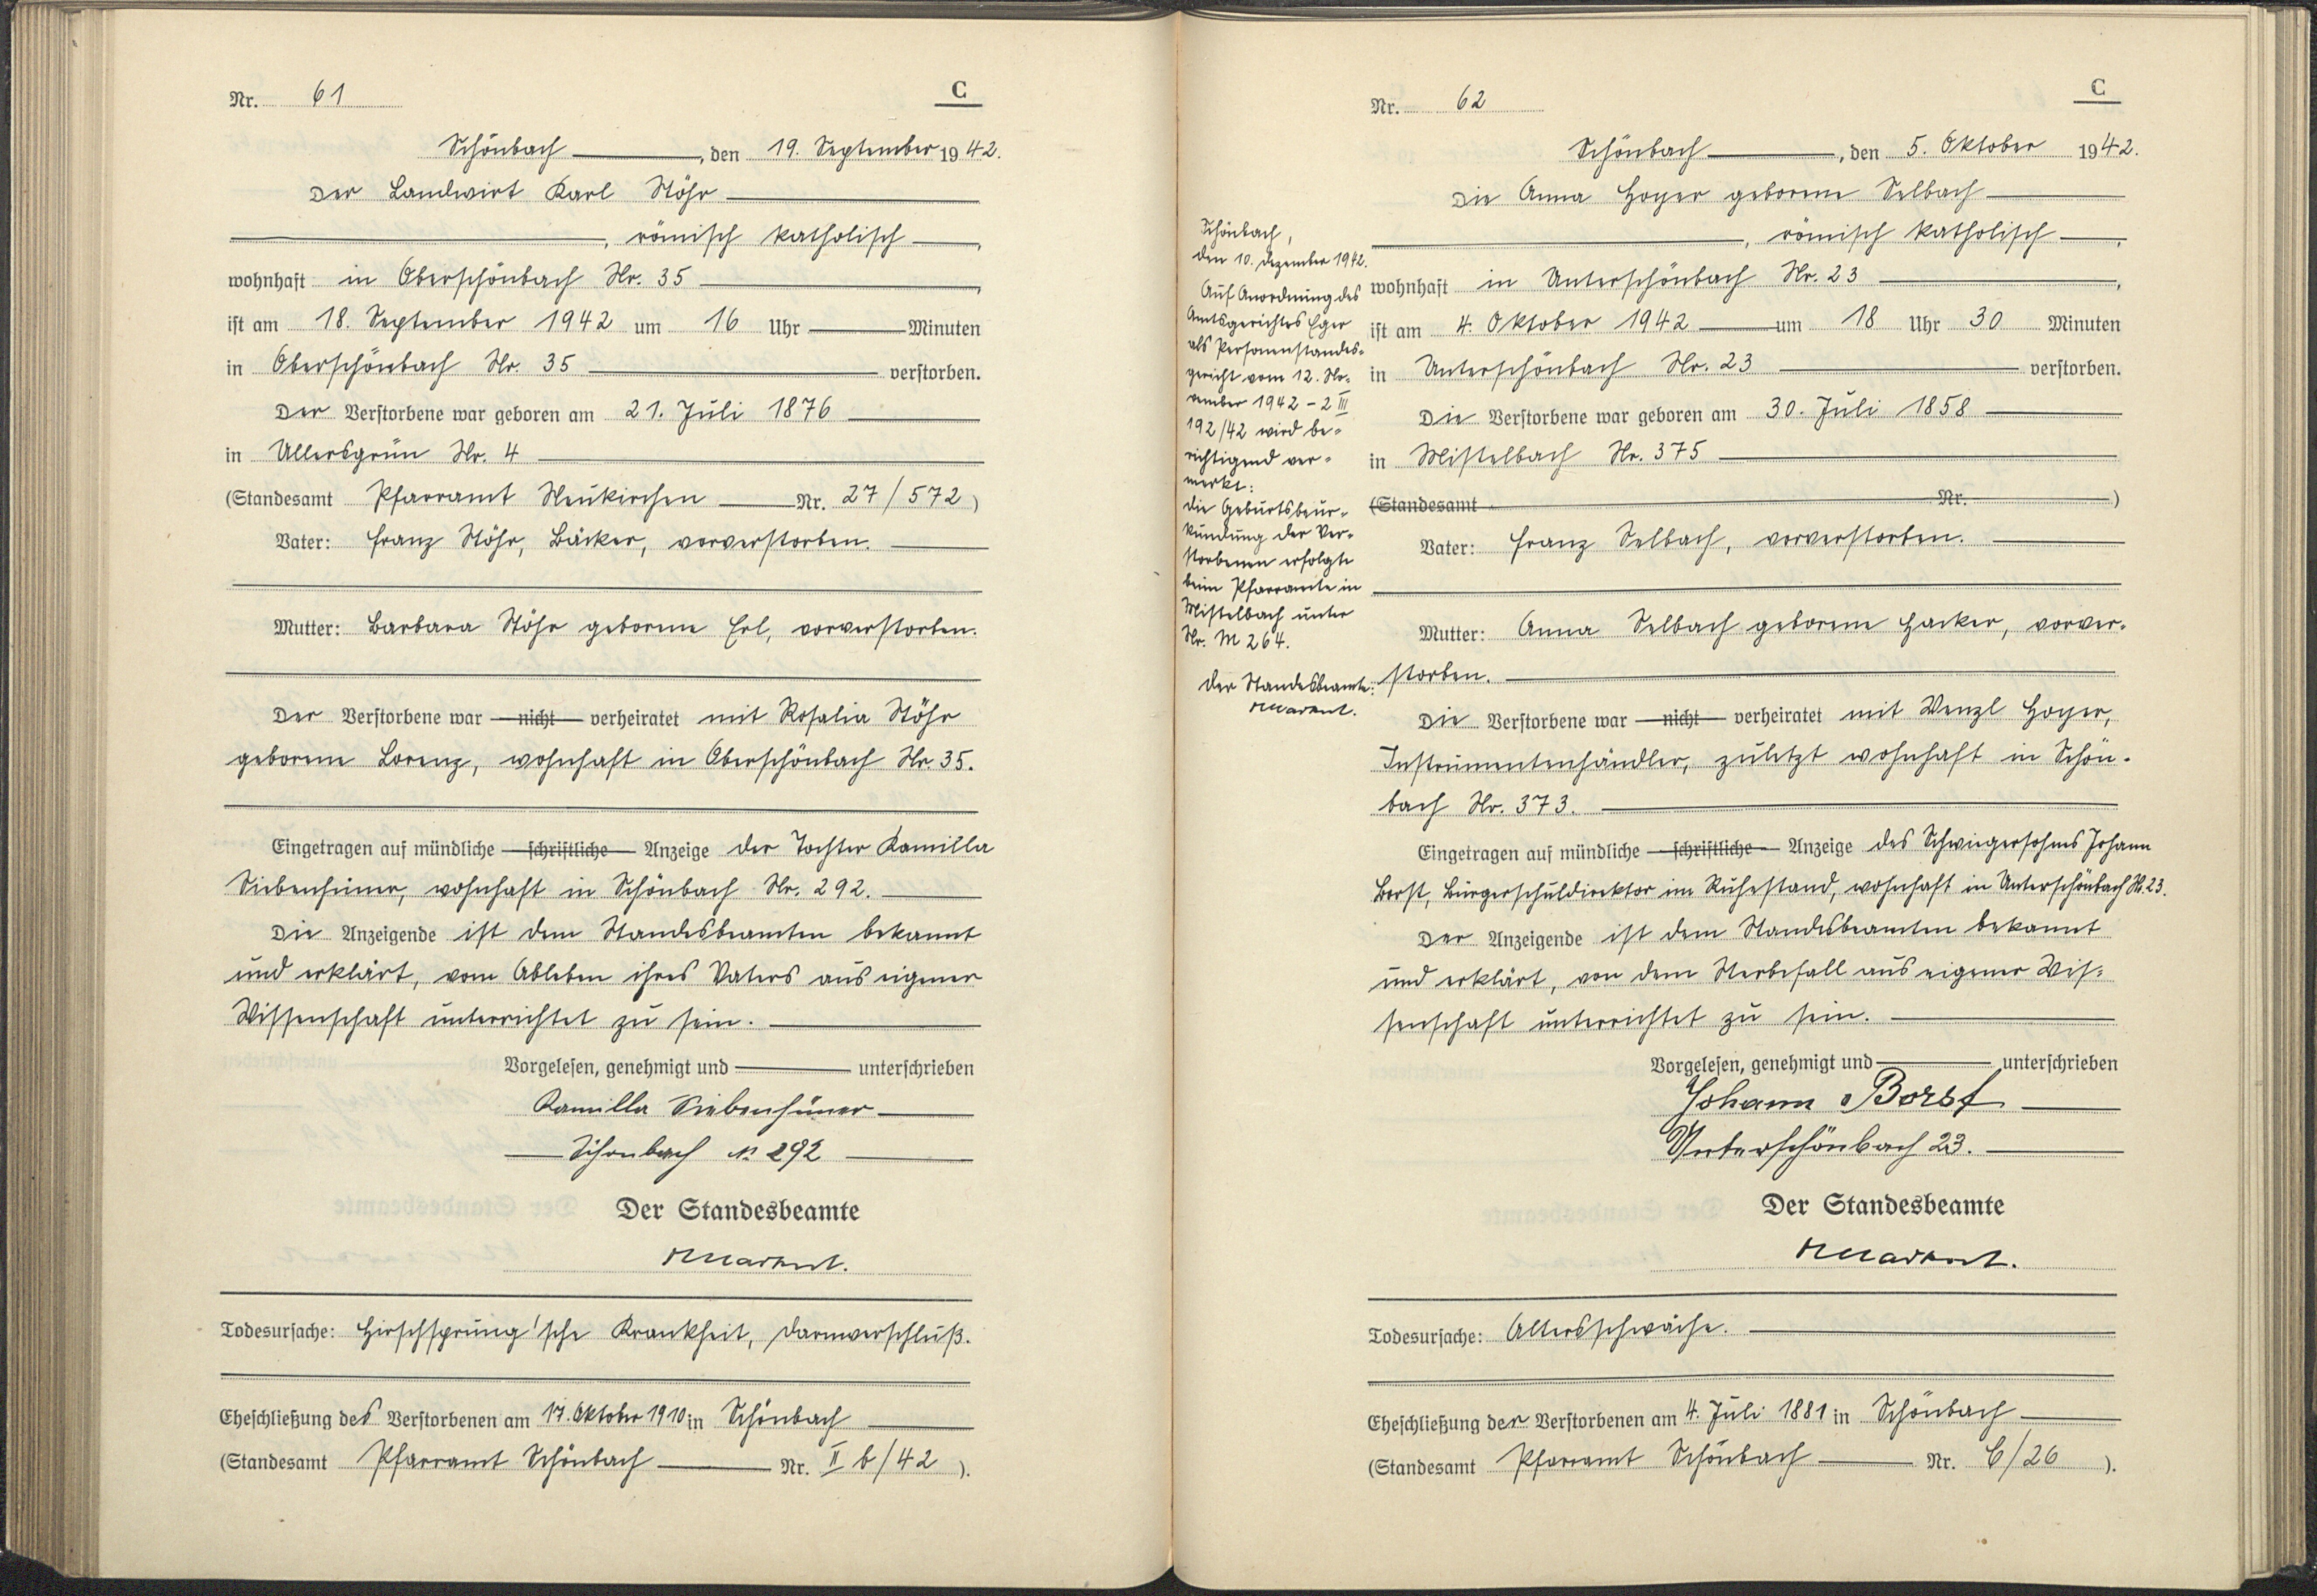 Nr. 61
C
Schönbach, den 19. September 1942.
Der Landwirt Karl Stöhr
, römisch katholisch,
wohnhaft in Oberschönbach Nr. 35,
ist am 18. September 1942 um 16 Uhr Minuten
in Oberschönbach Nr. 35 verstorben.
Der Verstorbene war geboren am 21. Juli 1876
in Ullersgrün Nr. 4
(Standesamt Pfarramt Neukirchen Nr. 27/572)
Vater: Franz Stöhr, Bäcker, vorverstorben.
Mutter: Barbara Stöhr geborene Erl, vorverstorben.
Der Verstorbene war nicht verheiratet mit Rosalia Stöhr
geborene Lorenz, wohnhaft in Oberschönbach Nr. 35.
Eingetragen auf mündliche schriftliche Anzeige der Tochter Kamilla
Siebenhüner, wohnhaft in Schönbach Nr. 292.
Die Anzeigende ist dem Standesbeamten bekannt
und erklärt, vom Ableben ihres Vaters aus eigener
Wissenschaft unterrichtet zu sein.
Vorgelesen, genehmigt und unterschrieben
Kamilla Siebenhüner
Schönbach N 292
Der Standesbeamte
Todesursache: Hirschsprung'sche Krankheit, Darmverschluß.
Eheschließung des Verstorbenen am 17. Oktober 1910 in Schönbach
(Standesamt Pfarramt Schönbach Nr. II b/42).
Nr. 62
C
Schönbach, den 5. Oktober 1942.
Die Anna Hoyer geborene Selbach
, römisch katholisch,
wohnhaft in Unterschönbach Nr. 23,
ist am 4. Oktober 1942 um 18 Uhr 30 Minuten
in Unterschönbach Nr. 23 verstorben.
Die Verstorbene war geboren am 30. Juli 1858
in Mistelbach Nr. 375
(Standesamt Nr. )
Vater: Franz Selbach, vorverstorben.
Mutter: Anna Selbach geborene Hacker, vorver-
storben.
Die Verstorbene war nicht verheiratet mit Wenzl Hoyer,
Instrumentenhändler, zuletzt wohnhaft in Schön-
bach Nr. 373.
Eingetragen auf mündliche schriftliche Anzeige des Schwiegersohnes Johann
Borst, Bürgerschuldirektor im Ruhestand, wohnhaft in Unterschönbach Nr. 23.
Der Anzeigende ist dem Standesbeamten bekannt
und erklärt, von dem Sterbefall aus eigener Wis-
senschaft unterrichtet zu sein.
Vorgelesen, genehmigt und unterschrieben
Johann Borst
Unterschönbach 23.
Der Standesbeamte
Todesursache: Altersschwäche.
Eheschließung der Verstorbenen am 4. Juli 1881 in Schönbach
(Standesamt Pfarramt Schönbach Nr. C/26).
Schönbach,
den 10. Dezember 1942.
Auf Anordnung des
Amtsgerichtes Eger
als Personenstandes-
gericht vom 12. No-
vember 1942 - 2 III
192/42 wird be-
richtigend ver-
merkt:
Die Geburtsbeur-
kundung der Ver-
storbenen erfolgte
beim Pfarramte in
Mistelbach unter
Nr. M 264.
Der Standesbeamte: